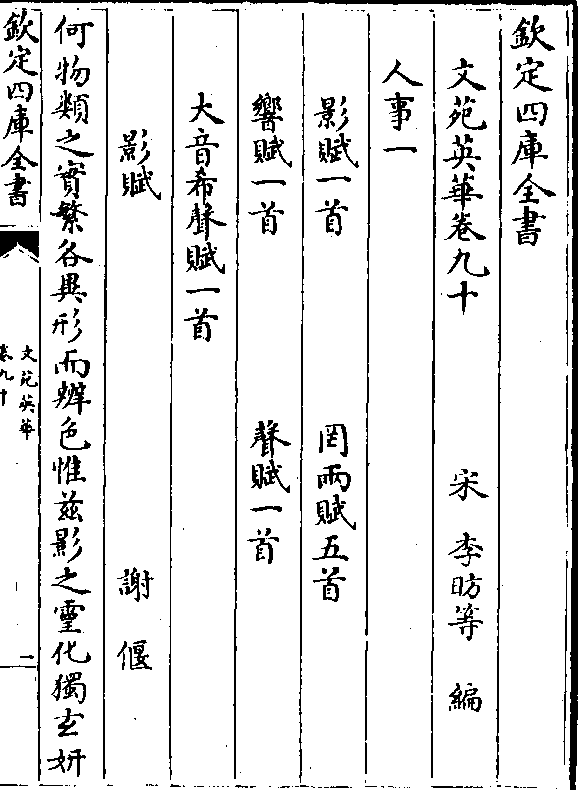 欽定四庫全書
文苑英華卷九十
宋 李昉等 編
人事一
影賦一首 罔兩賦五首
響賦一首 聲賦一首
大音希聲賦一首
影賦 謝偃
何物類之實繁各異形而辨色惟兹影之靈化獨玄妍
欽定四庫全書
文苑英華
卷九十
一